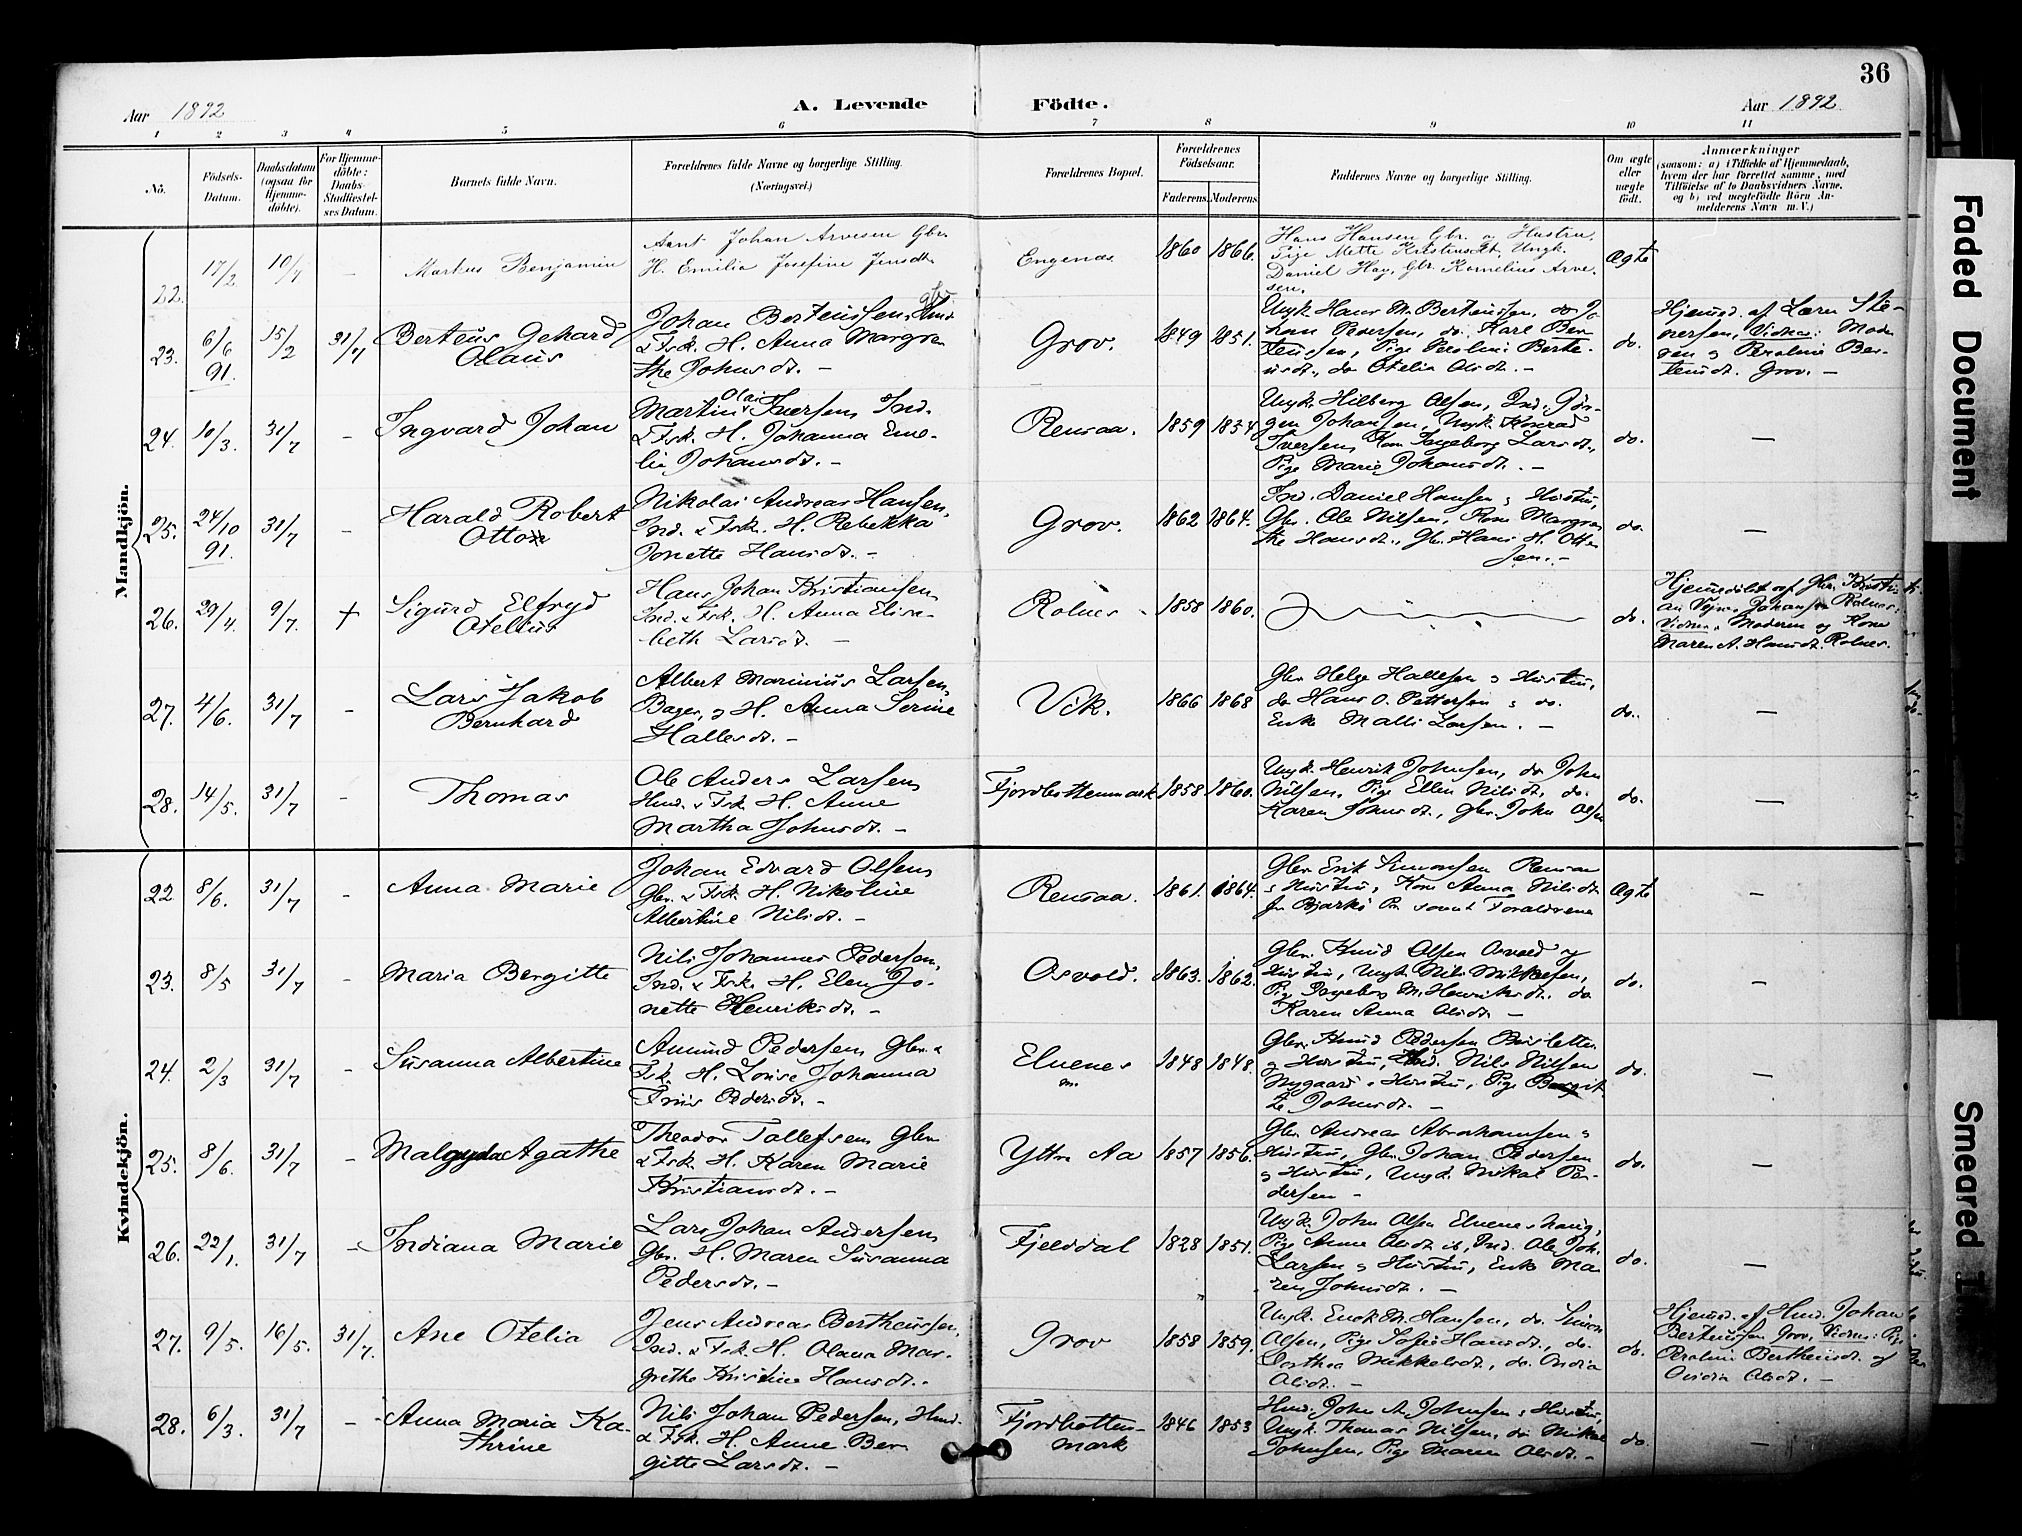 36
Aar 1892 A. Levende Födte. Aar 1892
1 2 3 4 5 6 7 8 9 10 11
No. Födsels-Datum. Daabsdatum (ogsaa for Hjemme-döbte). For Hjemme-döbte: Daabs-Stadfæstel-ses Datum. Barnets fulde Navn. Forældrenes fulde Navne og borgerlige Stilling. (Næringsvei.) Forældrenes Bopæl. Forældrenes Födselsaar. Faderens. Moderens. Faddernes Navne og borgerlige Stilling. Om ægte eller uægte födt. Anmærkninger (saasom: a) i Tilfælde af Hjemmedaab, hvem der har forrettet samme, med Tilföielse af to Daabsvidners Navne, og b) ved uægtefödte Börn An-melderens Navn m. V.)
Mandkjön.
22. 17/2 10/7 - Markus Benjamin
Arnt Johan Arvesen Gbr.
H. Emilia Josefine Jensdt.
Engenes 1860 1866.
Hans Hansen Gbr. o Hustru,
Pige Mette Kristensdt, Ungk.
Daniel Hag, Gbr. Kornelius Arve-
sen.
Ægte
23. 6/6 91. 15/2 31/7 Berteus Gehard
Olaus
Johan Berteussen, gbr.
& Fsk. H. Anna Margre
the Johnsdt. -
Grov. 1849 1851.
Ungk Hans M. Berteussen, do Jo
han Pedersen, do. Karl Ber
teussen, Pige Peroline Berte-
usdt., do Otelia Olsdt. -
do.
Hjemmd. af Lærer Ste-
nersen, Vidner: Mode
ren & Peroline Ber-
teusdt. Grov. -
24. 10/3. 31/7 - Ingvard Johan
Martin Olai Iversen Ind.
& Fsk. H. Johanna Eme-
lie Johansdt. -
Rensaa. 1859 1834
Ungk. Hilberg Olsen, Ind. Jör-
gen Johansen, Ungk. Konrad
Iversen, Kone Ingeborg Larsdt.,
Pige Marie Johansdt. -
do. -
25. 24/10 91. 31/7 - Harald Robert
Otto
Nikolai Andreas Hansen,
Ind. & Fsk. H. Rebekka
Jonette Hansdt. -
Grov. 1862 1864.
Ind. Daniel Hansen & Hustru,
Gbr. Ole Nilsen, Kone Margre
the Hansdt., Gbr. Hans H. Otte
sen. -
do. -
26. 29/4. 9/7. + Sigurd Elfryd
Otelius
Hans Johan Kristiansen
Ind. & Fsk. H. Anna Elisa-
beth Larsdt. -
Rolnes - 1858 1860.
do.
Hjemmedöbt af Gbr. Kristi
an Johansen Rolnes.
Vidner: Moderen og Kone
Maren A. Hansdt. Rolnes.
27. 4/6. 31/7 - Lars Jakob
Bernhard
Albert Marinius Larsen,
Bager, & H. Anna Serine
Hallesdt. -
Vik. 1866 1868
Gbr. Helge Hallesen & Hustru,
do Hans O. Pettersen & do.
Enke Malli Larsen. -
do. -
28. 14/5. 31/7 - Thomas
Ole Anders Larsen
Hmd. & Fsk. H. Anne
Martha Johnsdt. -
Fjordbottenmark 1858 1860.
Ungk. Henrik Johnsen, do John
Nilsen, Pige Ellen Nilsdt, do.
Karen Johnsdt., Gbr. John Olsen
do. -
Kvindekjön.
22 8/6. 31/7 - Anna Marie
Johan Edvard Olsen
Gbr. & Fsk. H. Nikoline
Albertine Nilsdt. -
Rensaa. 1861. 1864.
Gbr. Erik Simonsen Rensaa
& Hustru, Kone Anna Nilsdt
fr Bjarkö Pr. samt Forældrene
Ægte -
23. 8/5 31/7 - Maria Bergitte
Nils Johannes Pedersen,
Ind. & Fsk. H. Elen Jo-
nette Henriksdt. -
Osvold. 1863. 1862.
Gbr. Knud Olsen Osvold og
Hustru, Ungk. Nils Mikkelsen,
Pige Ingeborg M. Henriksdt. do
Karen Anna Olsdt. -
do. -
24. 2/3 31/7 - Susanna Albertine
Amund Pedersen Gbr. &
Fsk. H. Lovise Johanna
Friis Pedersdt. -
Elvenes 1848 1848.
Gbr. Knud Pedersen
& Hustru, Ind. Nils Nilsen
Nygaard & Hustru, Pige Bergit
te Johnsdt. -
do. -
25. 8/6. 31/7 - Malgyda Agathe
Theodor Tollefsen Gbr.
& Fsk. H. Karen Marie
Kristiansdt. -
Yttre Aa 1857 1856.
Gbr. Andreas Abrahamsen &
Hustru, Gbr. Johan Pedersen
& Hustru, Ungk. Mikal Pe-
dersen -
do. -
26. 22/1. 31/7 - Indiana Marie
Lars Johan Andersen
Gbr. H. Maren Susanna
Pedersdt. -
Fjelddal 1828 1851.
Ungk. John Olsen Elvenes
Pige Anne Olsdt ib, Ind. Ole Joh.
Larsen & Hustru, Enke Ma
ren Johnsdt. -
do. -
27. 9/5. 16/5. 31/7. Ane Otelia
Jens Andreas Bertheussen,
Ind. & Fsk. H. Olava Mar-
grethe Kristine Hansdt. -
Grov 1858 1859.
Ungk. M. Hansen, do. Simon
Olsen, Pige Sofie Hansdt., do.
Dorthea Mikkelsdt., do. Ovidia
Olsdt. -
do.
Hjemmd. af Hmd. Johan
Berteussen Grov, Vidner: Pig.
Peroline Bertheusdt. og
Ovidia Olsdt. -
28. 6/3. 31/7 - Anna Maria Ka-
thrine
Nils Johan Pedersen, Hmd.
& Fsk. H. Anne Ber
gitte Larsdt. -
Fjordbotten-
mark 1846 1853
Hmd. John A. Johnsen & Hustru,
Ungk. Thomas Nilsen, do Mikal
Johnsen, Pige Maren Olsdt. -
do. -
Faded Document
Smeared